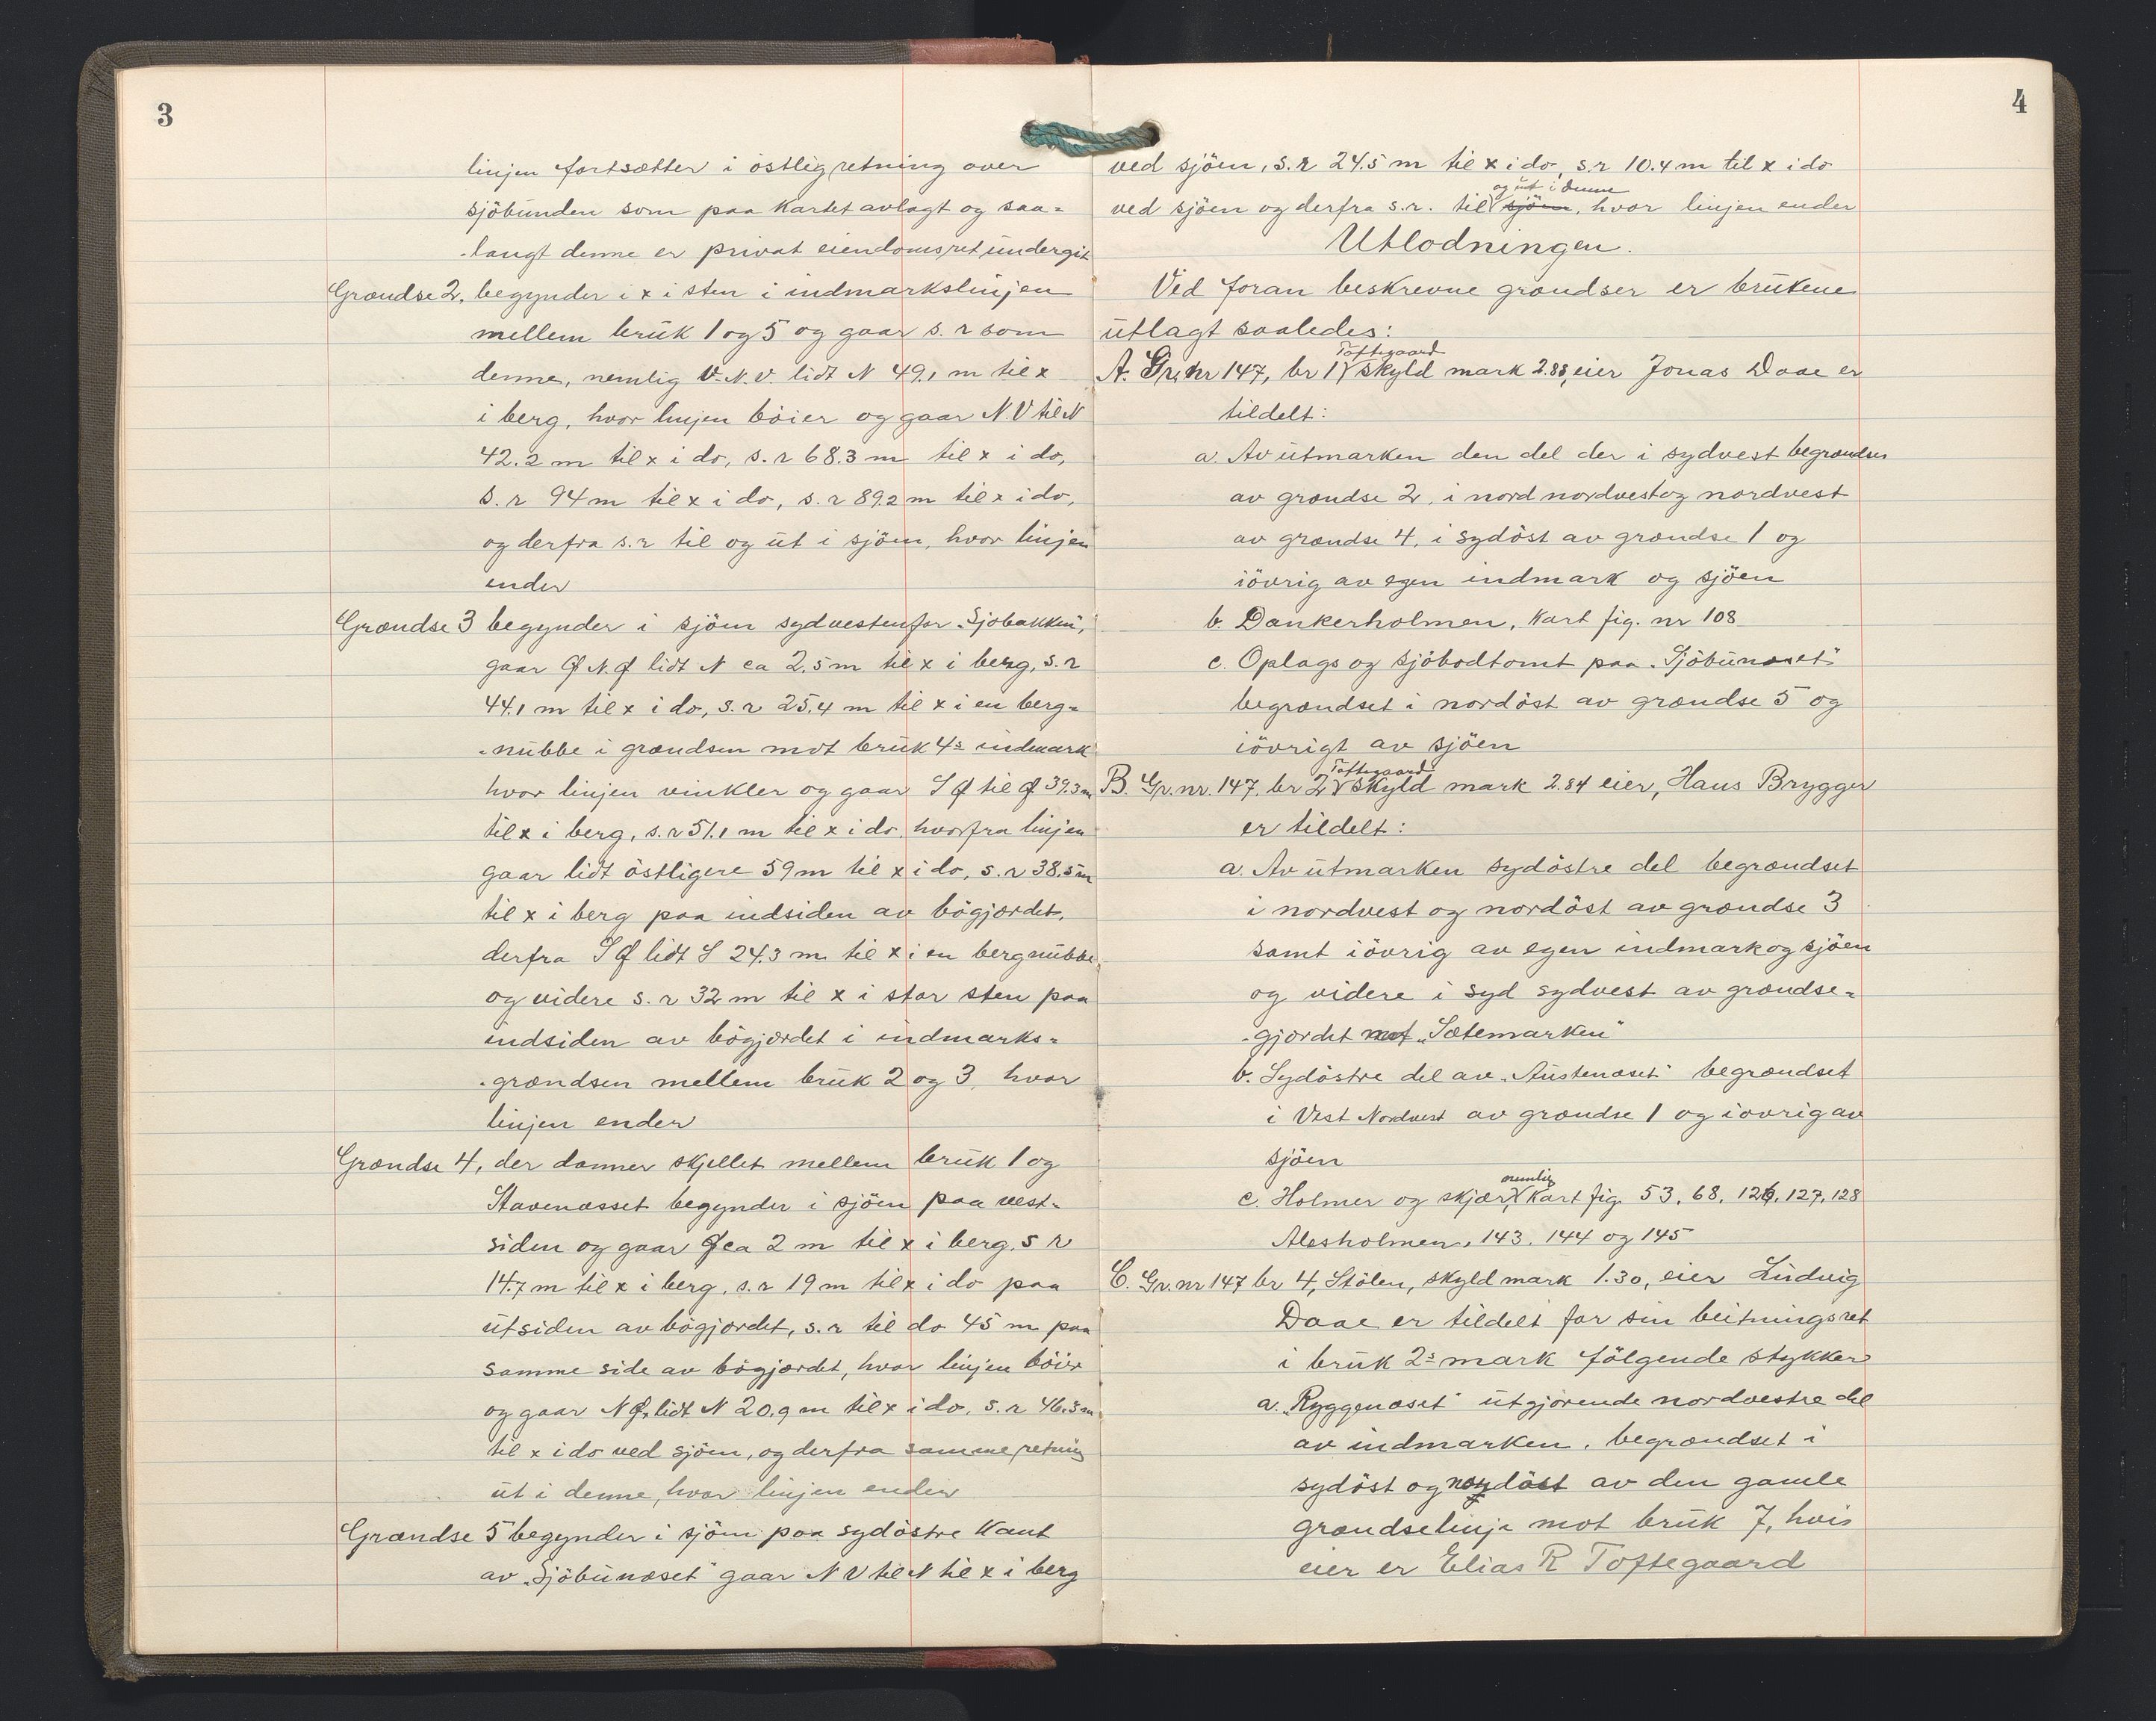 3
linjen fortsætter i östlig retning over
sjöbunden som paa kartet avlagt og saa-
-langt denne er privat eiendomsret undergit
Grændse 2, begynder i x i sten i indmarkslinjen
mellem bruk 1 og 5 og gaar s. r som
denne, nemlig V.N.V. lidt N 49.1 m til x
i berg, hvor linjen böier og gaar N.V til N
42.2 m til x i do, s. r 68.3 m til x i do,
s. r 94 m til x i do, s. r 89.2 m til x i do,
og derfra s. r til og ut i sjöen, hvor linjen
ender
Grændse 3 begynder i sjöen sydvestenfor "Sjøbakken",
gaar Ø N. Ø lidt N ca 2.5 m til x i berg, s. r
44.1 m til x i do, s. r 25.4 m til x i en berg-
-nubbe i grændsen mot bruk 4s indmark
hvor linjen vinkler og gaar S Ø til Ø 39.3 m
til x i berg, s. r 51.1 m til x i do, hvorfra linjen
gaar lidt östligere 59 m til x i do, s. r 38.5 m
til x i berg paa indsiden av bögjærdet,
derfra S Ø lidt S 24.3 m til x i en bergnubbe,
og videre s. r 32 m til x i stor sten paa
indsiden av bögjærdet i indmarks-
-grændsen mellem bruk 2 og 3, hvor
linjen ender
Grændse 4, der danner skjellet mellem bruk 1 og
Stavenæsset begynder i sjöen paa vest-
siden og gaar Ø ca 2 m til x i berg, s r
14.7 m til x i berg, s. r 19 m til x i do paa
utsiden av bögjærdet, s. r til do 45 m paa
samme side av bögjærdet, hvor linjen böier
og gaar N Ø, lidt N 20.9 m til x i do, s. r 46.5 m
til x i do ved sjöen, og derfra samme retning
ut i denne, hvor linjen ender
Grændse 5 begynder i sjöen paa sydöstre kant
av "Sjöbunæset" gaar N V til N til x i berg
4
ved sjöen, s. r 24.5 m til x i do, s. r 10.4 m til x i do
og ut i denne
ved sjöen og derfra s. r. til sjöen, hvor linjen ender
Utlodningen.
Ved foran beskrevne grændser er brukene
utlagt saaledes:
Toftegaard
A. Gr, nr 147, br 1, skyld mark 2.88, eier Jonas Daae er
tildelt:
a. Av utmarken den del der i sydvest begrændses
av grændse 2, i nord nordvest og nordvest
av grændse 4, i sydöst av grændse 1 og
iövrig av egen indmark og sjöen
b. Dankerholmen, kart fig. nr 108
c. Oplags og sjöbodtomt paa "Sjöbunæset"
begrændset i nordöst av grændse 5 og
iövrigt av sjöen
Toftegaard
B. Gr. nr. 147, br 2, skyld mark 2.84 eier, Hans Brygger
er tildelt:
a. Av utmarken sydöstre del begrændset
i nordvest og nordöst av grændse 3
samt iövrig av egen indmark og sjöen
og videre i syd sydvest av grændse-
-gjærdet mot "Sætemarken"
b. Sydöstre del av "Austenæset" begrændset
i Vest Nordvest av grændse 1 og iovrig av
sjöen
nemlig
c. Holmer og skjær, kart fig. 53, 68, 126, 127, 128
Alesholmen, 143, 144 og 145
C. Gr. nr 147 br 4, Stölen, skyld mark 1.30, eier Ludvig
Daae er tildelt for sin beitningsret
i bruk 2s mark fölgende stykker
a. "Ryggenæset" utgjörende nordvestre del
av indmarken, begrændset i
sydöst og nordöst av den gamle
grændselinje mot bruk 7, hvis
eier er Elias R Toftegaard